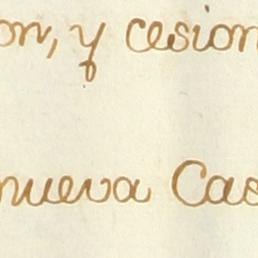 on, y cesion
nueva Cas